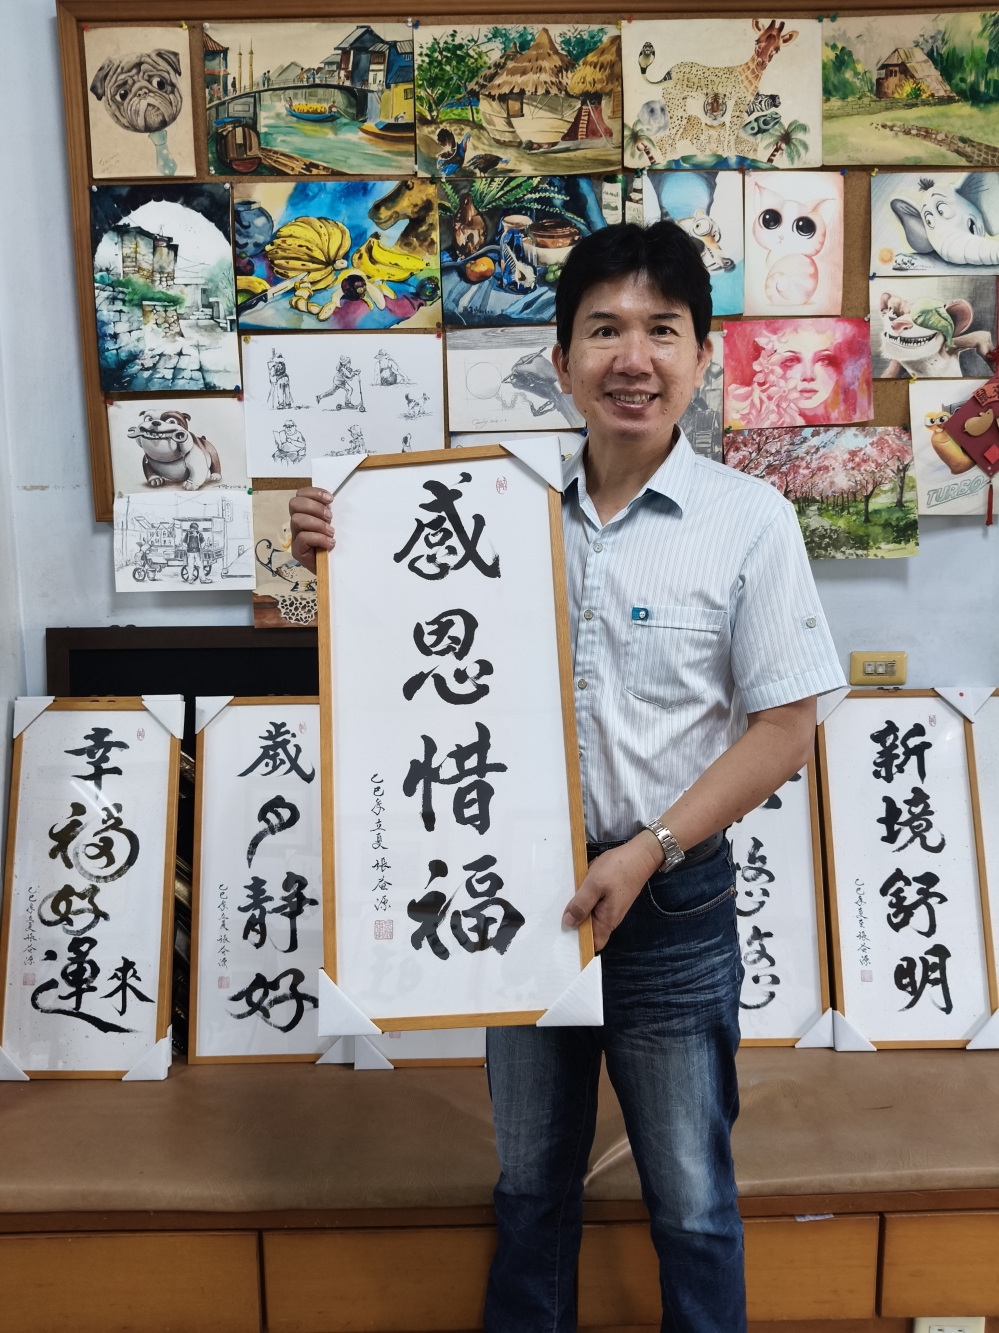 感恩惜福
乙巳年立夏 張谷源
幸福好運來
乙巳年夏 張谷源
歲月靜好
乙巳年立夏 張谷源
新境舒明
乙巳年夏至 張谷源
TURBO